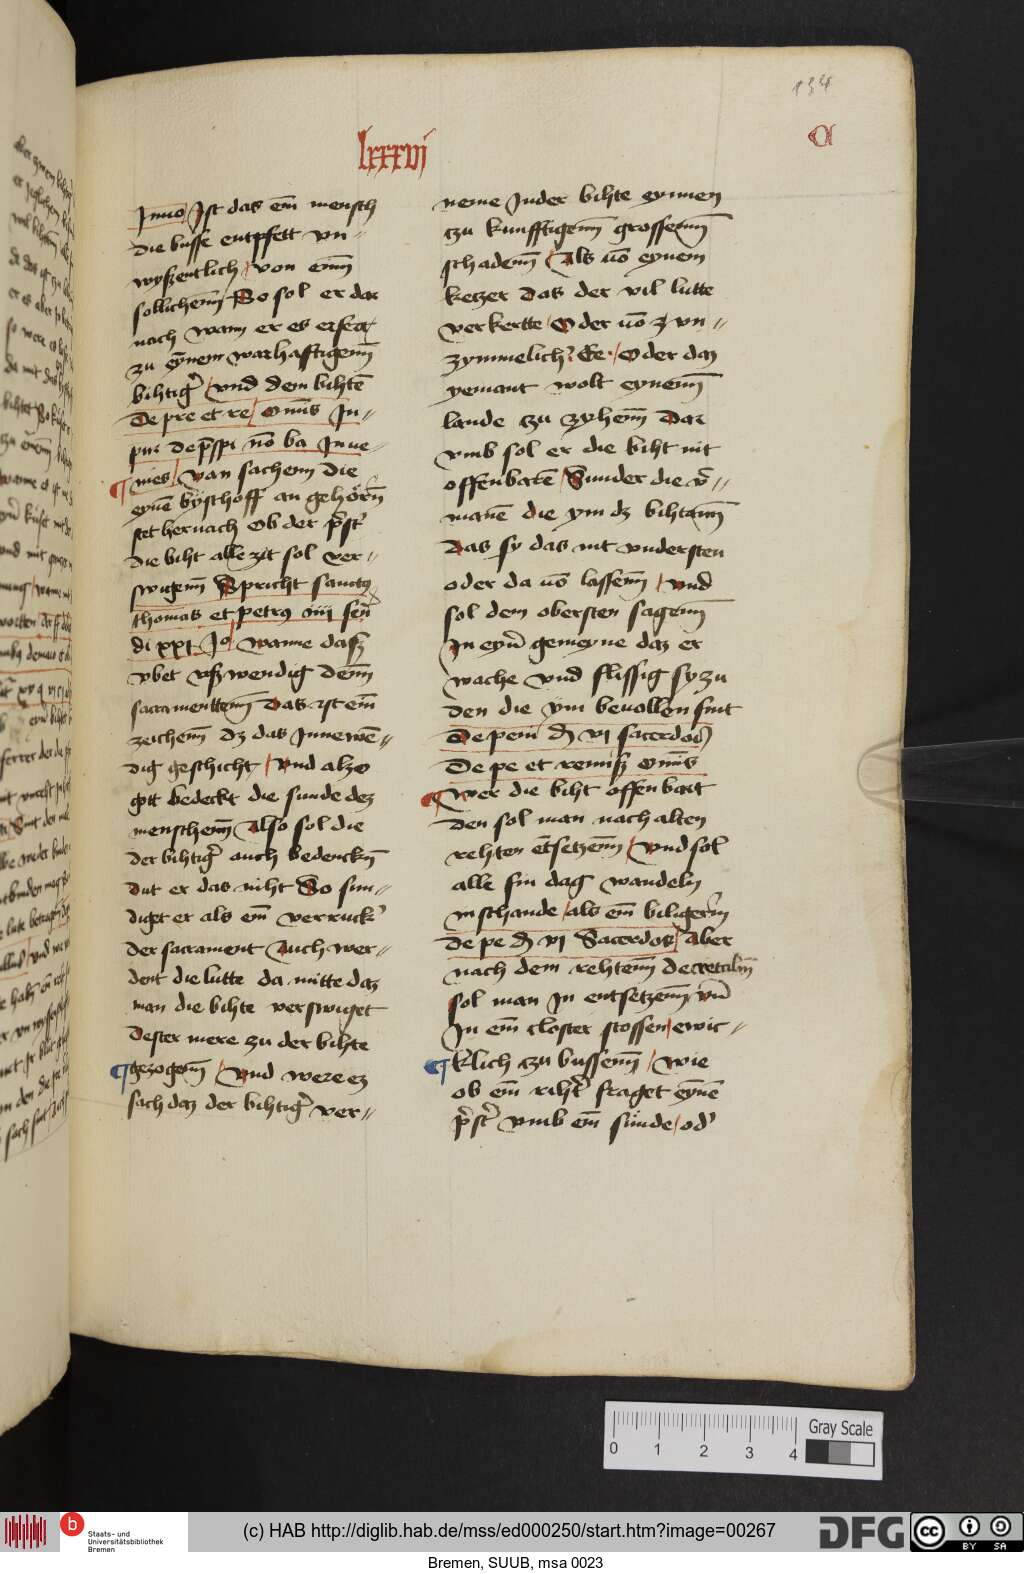 134
lxxxvi
a
Jnno Jst das em̄ mensch
die busse entpfett vn=
wyszentlich von em̄
sollichem̄ So sol er dar
nach wann er es erfert
zu eȳnem warhafftigem̄
bihtig͛ vnd dem bihtē
De pre et re om̄s Ju=
nies van sachenn die
eynē byschoff an gehörn̄
stet hernach Ob der pr̄st͛
die biht alle zit sol ver=
swigenn̄ Spricht sanctꝰ
thomas et petrꝰ iiij sen̄
di xxj Jo wanne dasz
vbet vszwendig denn̄
sacramenttem̄ das ist em̄
zeichenn̄ dz das Jnnewē=
dig geschicht vnd alzo
gott bedeckt die sunde dez
menschenn̄ Also sol die
der bihtig͛ auch bedenckn̄
dut er das niht So sun=
diget er als em̄ verruck͛
der sacrament Auch wer=
dent die lutte da mitte daz
man die bihte verswiget
dester mere zu der bihte
gezogenn̄ Vnd were ez
sach daz der bihtig͛ ver=
neme Jnder bihte eynnen
czu kunfftigenn̄ grossenn̄
schadenn̄ Als vō eynem
ketzer das der vil lutte
verkertte Oder vō
zymmelich͛ Ee Oder daz
yemant wolt eynem̄
lande czu zyhenn̄ Dar
vmb sol er die biht nit
offenbarē Sunder die v͛=
manē die ym dz bihtann̄
Das sy das nit vndersten
oder da vō lassenn̄ vnd
sol dem obersten sagenn̄
Jn eyn͛ gemeyne daz er
wache vnd flissig sy zu
den die ym bevollen sint
De peni d vj sacerdos
De pe et remisz om̄s
Wer die biht offenbart
den sol man nach alten
rehten ētsetzenn̄ Vnd sol
alle sin dag wandeln
in schande als em̄ bilgerin
de pe d vj Sacerdos Aber
nach dem rehtenn̄ decretaln̄
sol man Jn entsetzenn̄ vn̄
Jn em̄ closter stossen ewic=
klich czu bussenn̄ Wie
ob em̄ riht͛ fraget eynē
pr̄st͛ vmb em̄ sünde od͛
0 1 2 3 4
Gray Scale
b
Staats- und
Universitätsbibliothek
Bremen
(c) HAB http://diglib.hab.de/mss/ed000250/start.htm?image=00267
DFG
cc BY SA
Bremen, SUUB, msa 0023